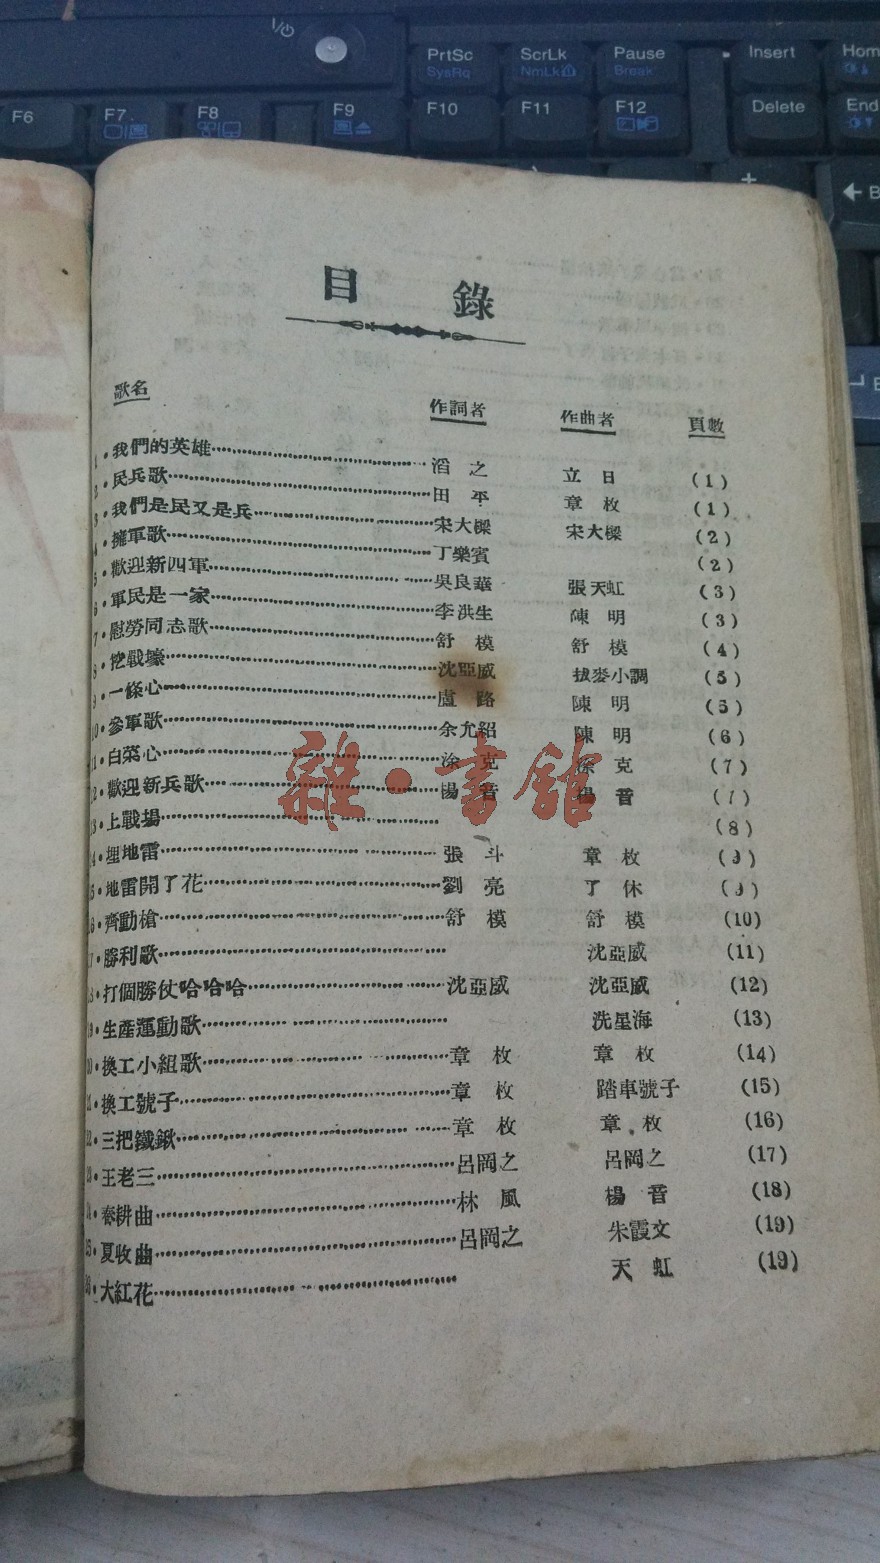 I/⏻
PrtSc ScrLk Pause Insert Hom
SysRq NmLk Break
F6 F7 F8 F9 F10 F11 F12 Delete End
目錄
歌名 作詞者 作曲者 頁數
1・我們的英雄 滔之 立日 (1)
2・民兵歌 田平 章枚 (1)
3・我們是民又是兵 宋大樑 宋大樑 (2)
4・擁軍歌 丁樂賓 (2)
5・歡迎新四軍 吳良華 張天虹 (3)
6・軍民是一家 李洪生 陳明 (3)
7・慰勞同志歌 舒模 舒模 (4)
8・挖戰壕 沈亞威 拔麥小調 (5)
9・一條心 盧路 陳明 (5)
10・參軍歌 余允紹 陳明 (6)
11・白菜心 涂克 涂克 (7)
12・歡迎新兵歌 楊音 楊音 (7)
13・上戰場 (8)
14・埋地雷 張斗 章枚 (9)
15・地雷開了花 劉亮 了休 (9)
16・齊動槍 舒模 舒模 (10)
17・勝利歌 沈亞威 (11)
18・打個勝仗哈哈哈 沈亞威 沈亞威 (12)
19・生產運動歌 洗星海 (13)
20・換工小組歌 章枚 章枚 (14)
21・換工號子 章枚 踏車號子 (15)
22・三把鐵鍬 章枚 章枚 (16)
23・王老三 呂岡之 呂岡之 (17)
24・春耕曲 林風 楊音 (18)
25・夏收曲 呂岡之 朱霞文 (19)
26・大紅花 天虹 (19)
雜・書館